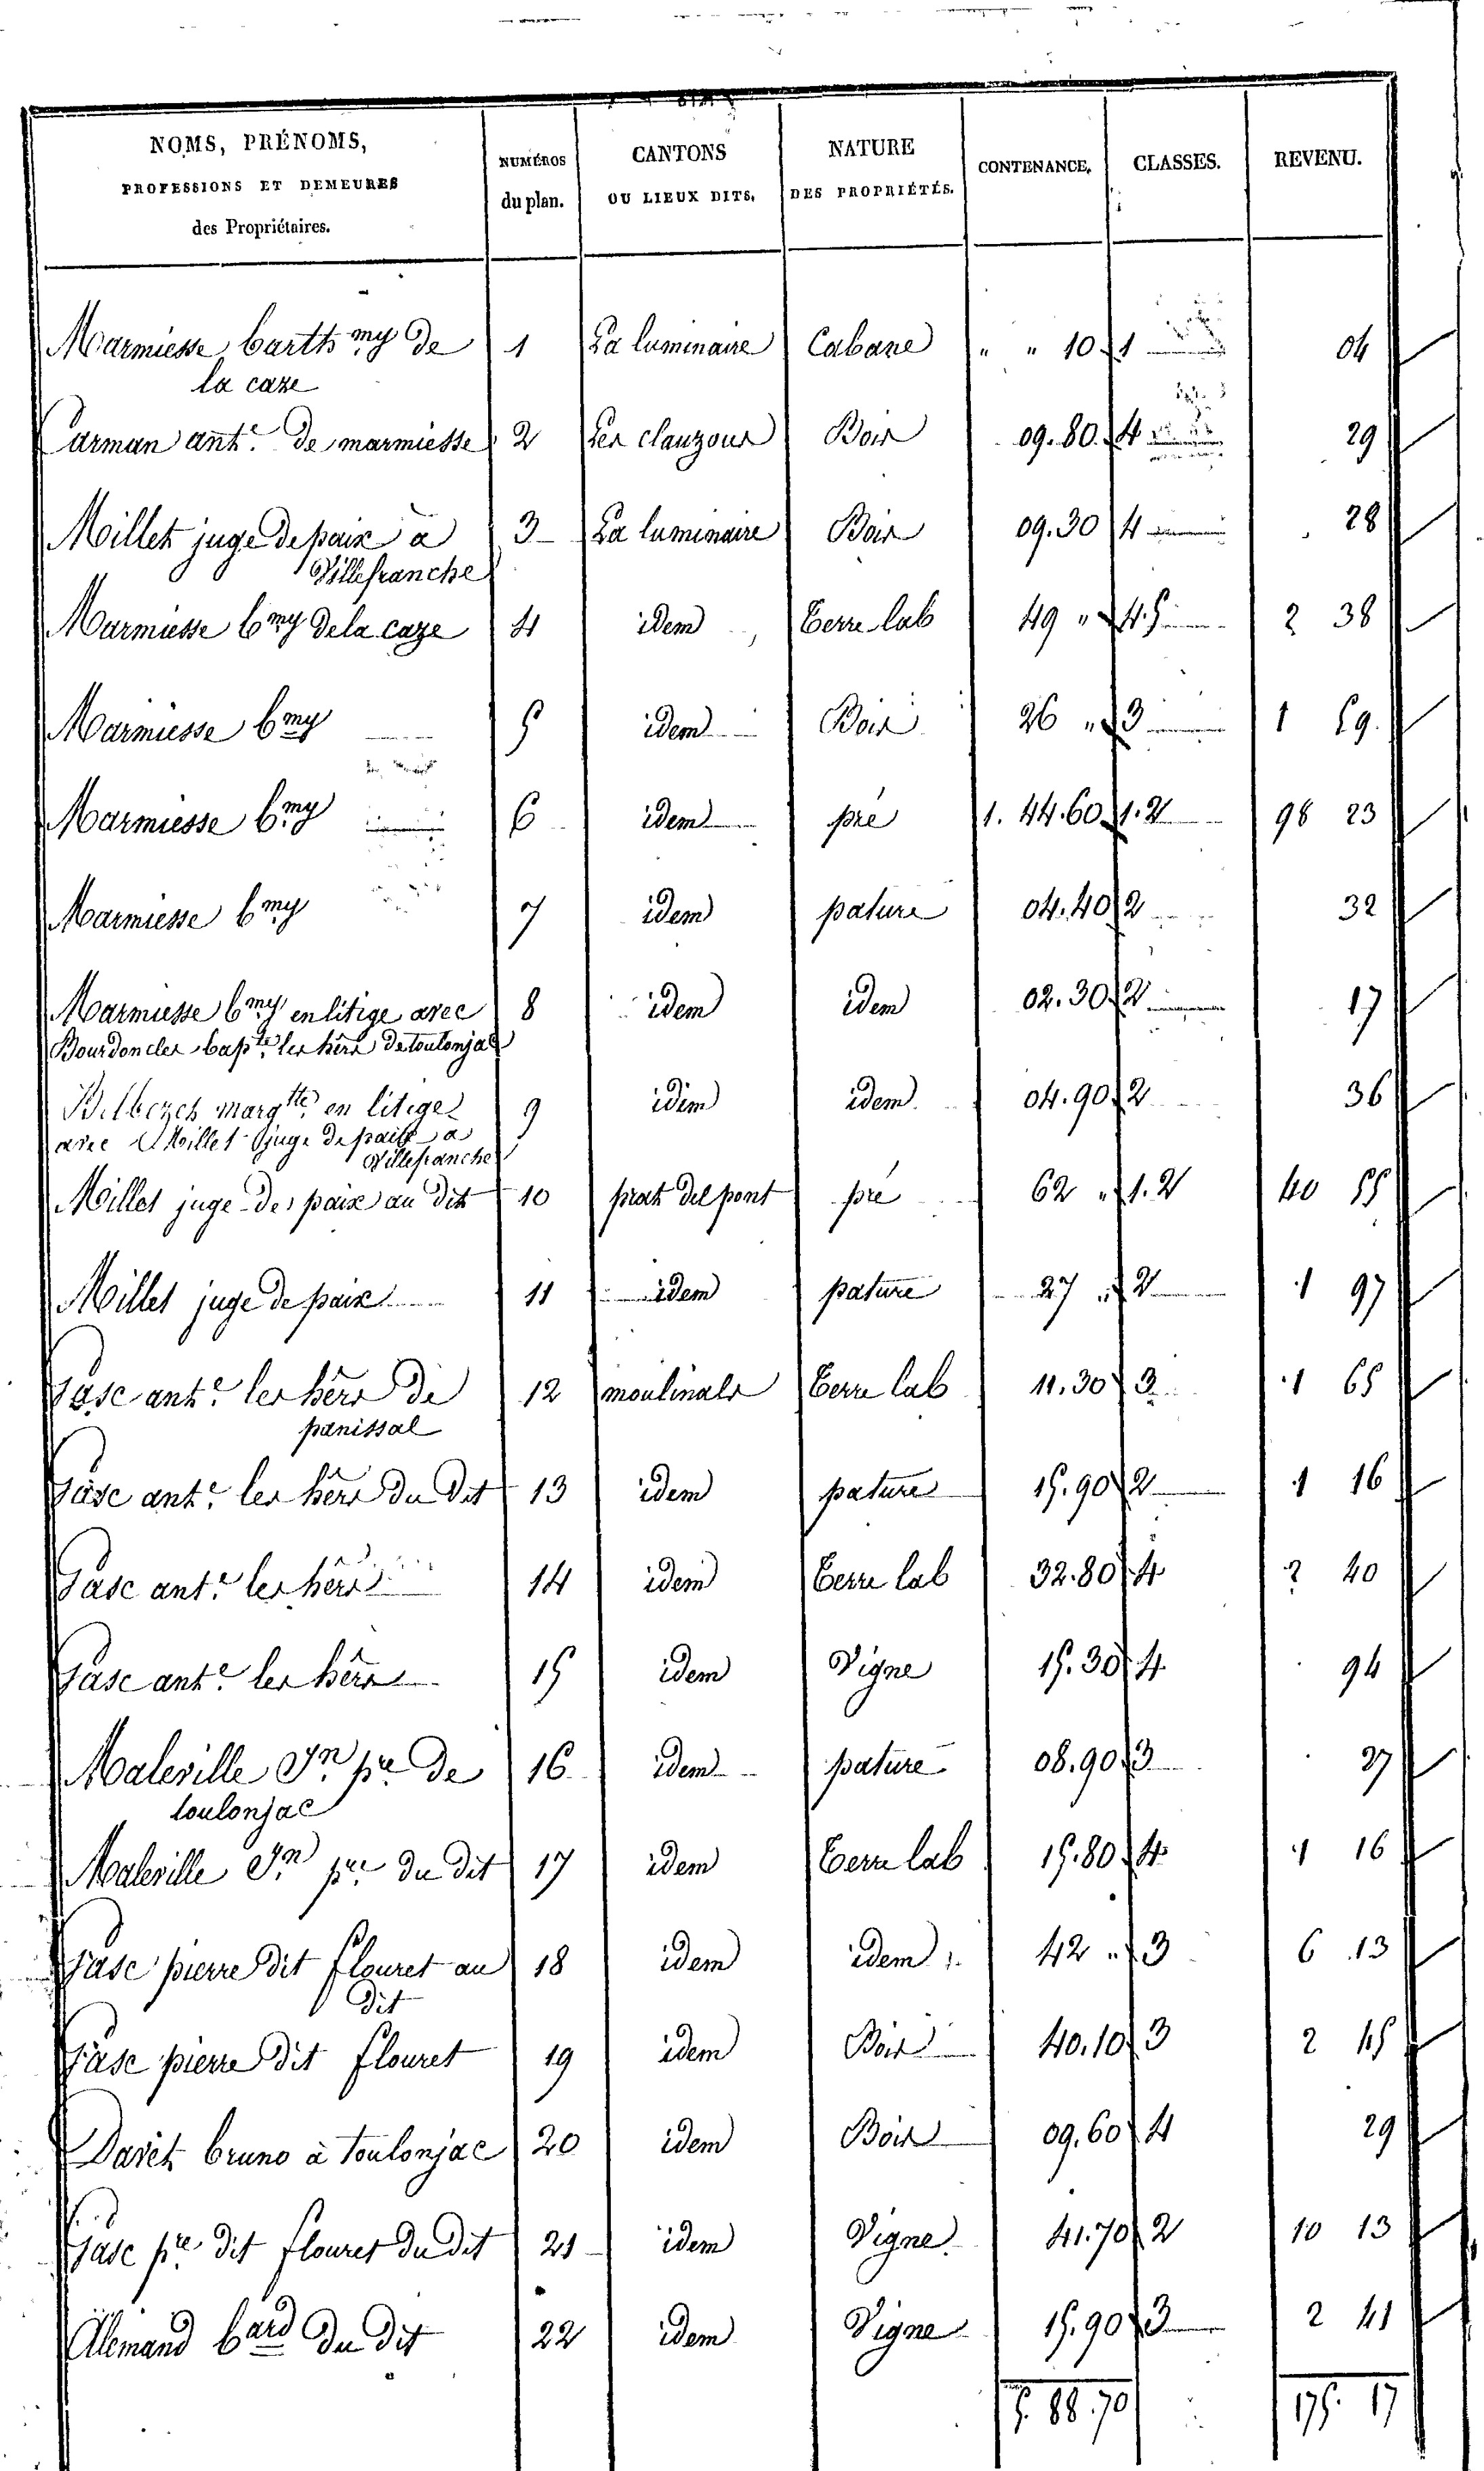 NOMS, PRÉNOMS,
PROFESSIONS ET DEMEURES
des Propriétaires.
NUMÉROS
du plan.
CANTONS
OU LIEUX DITS.
NATURE
DES PROPRIÉTÉS.
CONTENANCE.
CLASSES.
REVENU.
Marmiesse barth.my de 1 La luminaire Cabane " " 10 1 04
la caze
Carman ant.e de marmiesse 2 Les clauzous Bois 09.80. 4 29
Millet juge de paix à 3 La luminaire Bois 09.30 4 28
Villefranche
Marmiesse b.my de la caze 4 idem Terre lab 49 " 4.5 2 38
Marmiesse b.my 5 idem Bois 26 " 3 1 59.
Marmiesse b.my 6 idem pré 1. 44.60 1.2 98 23
Marmiesse b.my 7 idem pature 04.40 2 32
Marmiesse b.my en litige avec 8 idem idem 02.30 2 17
Bourdoncles bap.te les hërs de toulonjac
marg.tte en litige 9 idem idem 04.90 2 36
avec Millet juge de paix a
Villefranche
Millet juge de paix au dit 10 prat del pont pré 62 " 1.2 40 55
Millet juge de paix 11 idem pature 27 " 2 1 97
Gasc ant.e les hërs de 12 moulinals Terre lab 11.30 3 1 65
panissal
Gasc ant.e les hërs du dit 13 idem pature 15.90 2 1 16
Gasc ant.e les hërs 14 idem Terre lab 32.80 4 2 40
Gasc ant.e les hërs 15 idem Vigne 15.30 4 94
Maleville Jn pre de 16 idem pature 08.90 3 27
toulonjac
Maleville Jn pre du dit 17 idem Terre lab 15.80 4 1 16
Gasc pierre dit flouret au 18 idem idem 42 " 3 6 13
dit
Gasc pierre dit flouret 19 idem Bois 40.10 3 2 45
bruno à toulonjac 20 idem Bois 09.60 4 29
Gasc pre dit flouret du dit 21 idem Vigne 41.70 2 10 13
Alemand b.ard du dit 22 idem Vigne 15.90 3 2 41
5. 88.70 175. 17